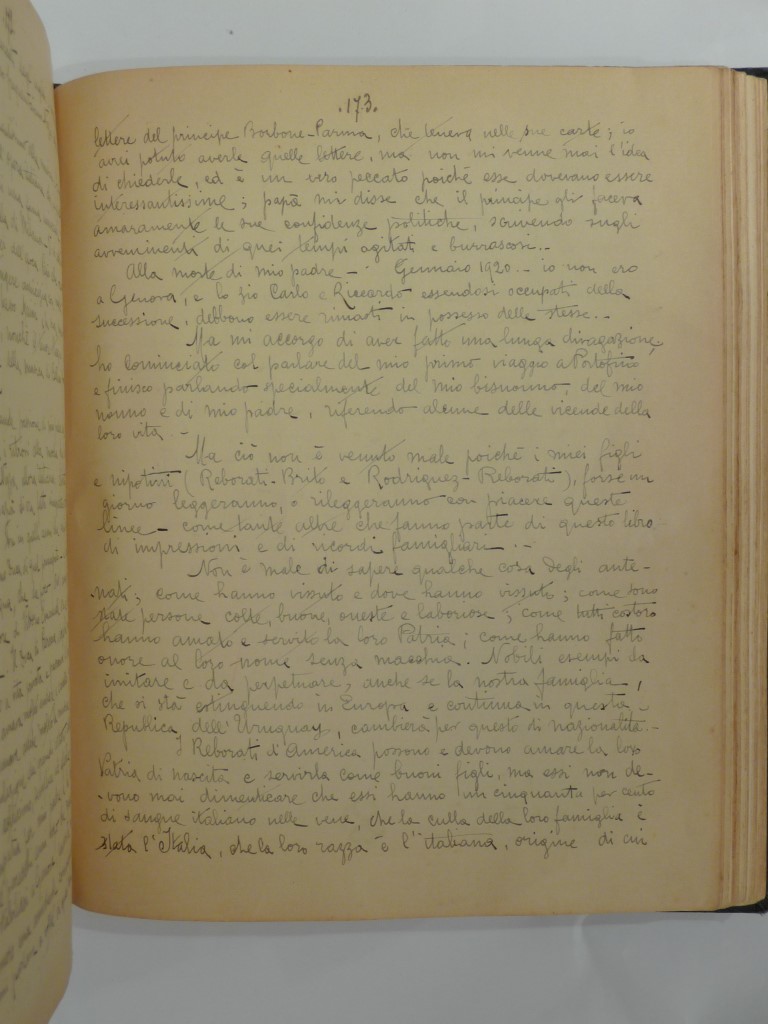 .173.
lettere del principe Borbone-Parma, che teneva nelle sue carte; io
avrei potuto averle quelle lettere, ma non mi venne mai l'idea
di chiederle, ed è un vero peccato poiché esse dovevano essere
interessantissime; papà mi disse che il principe gli faceva
amaramente le sue confidenze politiche, scrivendo sugli
avvenimenti di quei tempi agitati e burrascosi.-
Alla morte di mio padre - Gennaio 1920.- io non ero
a Genova, e lo zio Carlo e Riccardo essendosi occupati della
successione, debbono essere rimasti in possesso delle stesse.-
Ma mi accorgo di aver fatto una lunga divagazione,
ho cominciato col parlare del mio primo viaggio a Portofino
e finisco parlando specialmente del mio bisnonno, del mio
nonno e di mio padre, riferendo alcune delle vicende della
loro vita.-
Ma ciò non è venuto male poiché i miei figli
e nipotini (Reborati-Brito e Rodriguez-Reborati), forse un
giorno leggeranno, o rileggeranno con piacere queste
linee - come tante altre che fanno parte di questo libro
di impressioni e di ricordi famigliari.-
Non è male di sapere qualche cosa degli ante-
nati; come hanno vissuto e dove hanno vissuto; come sono
state persone colte, buone, oneste e laboriose; come tutti costoro
hanno amato e servito la loro Patria; come hanno fatto
onore al loro nome senza macchia. Nobili esempi da
imitare e da perpetuare, anche se la nostra famiglia,
che si stà estinguendo in Europa e continua in questa
Republica dell'Uruguay, cambierà per questo di nazionalità.-
I Reborati d'America possono e devono amare la loro
Patria di nascita e servirla come buoni figli, ma essi non de-
-vono mai dimenticare che essi hanno un cinquanta per cento
di sangue italiano nelle vene, che la culla della loro famiglia è
stata l'Italia, che la loro razza è l'italiana, origine di cui